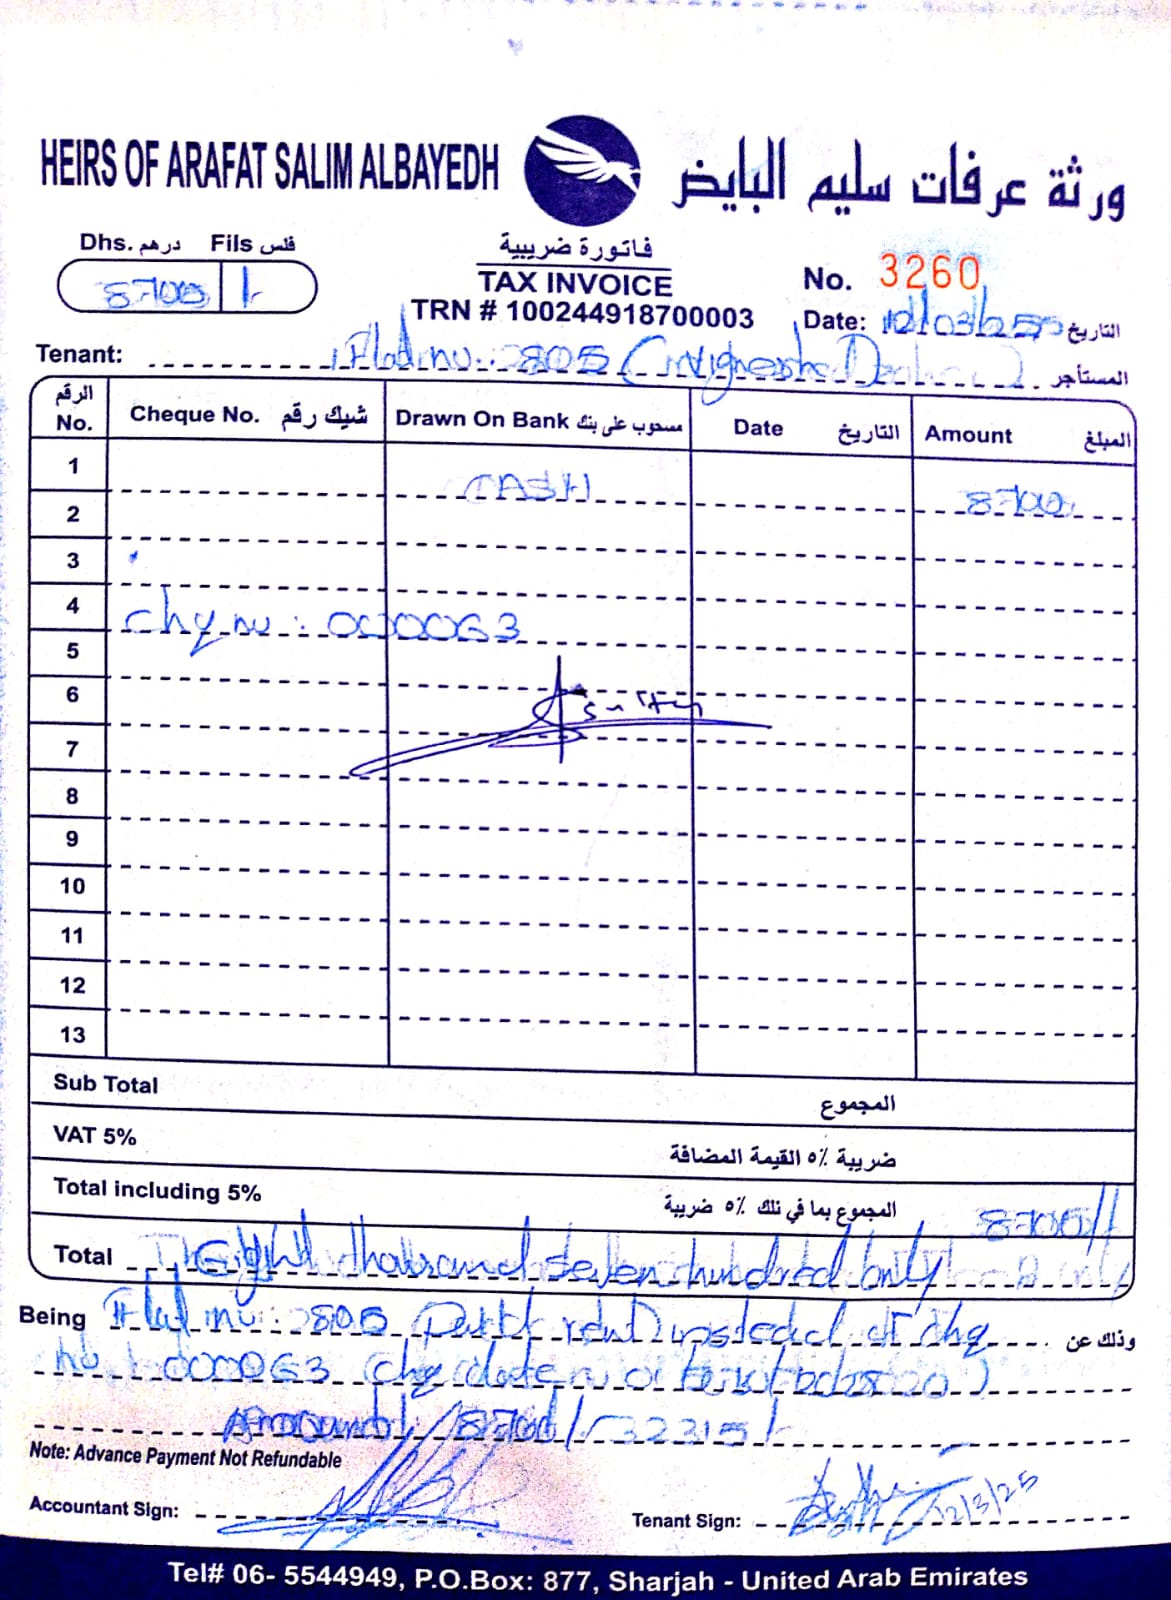 HEIRS OF ARAFAT SALIM ALBAYEDH
ورثة عرفات سليم البايض
Dhs. درهم Fils فلس
8700 /-
فاتورة ضريبية
TAX INVOICE
TRN # 100244918700003
No. 3260
Date: 12/03/25 التاريخ
Tenant: Flat no: 805 المستأجر
الرقم No. Cheque No. شيك رقم Drawn On Bank مسحوب على بنك Date التاريخ Amount المبلغ
1 CASH 8700
2
3
4 chq no: 000063
5
6
7
8
9
10
11
12
13
Sub Total المجموع
VAT 5% ضريبة ٥٪ القيمة المضافة
Total including 5% المجموع بما في ذلك ٥٪ ضريبة 8700/
Total Eight thousand seven hundred only
Being Flat no: 805 rent chq وذلك عن
no: 000063 (chq date
Amount 8700/-
Note: Advance Payment Not Refundable
Accountant Sign: Tenant Sign: 12/3/25
Tel# 06- 5544949, P.O.Box: 877, Sharjah - United Arab Emirates